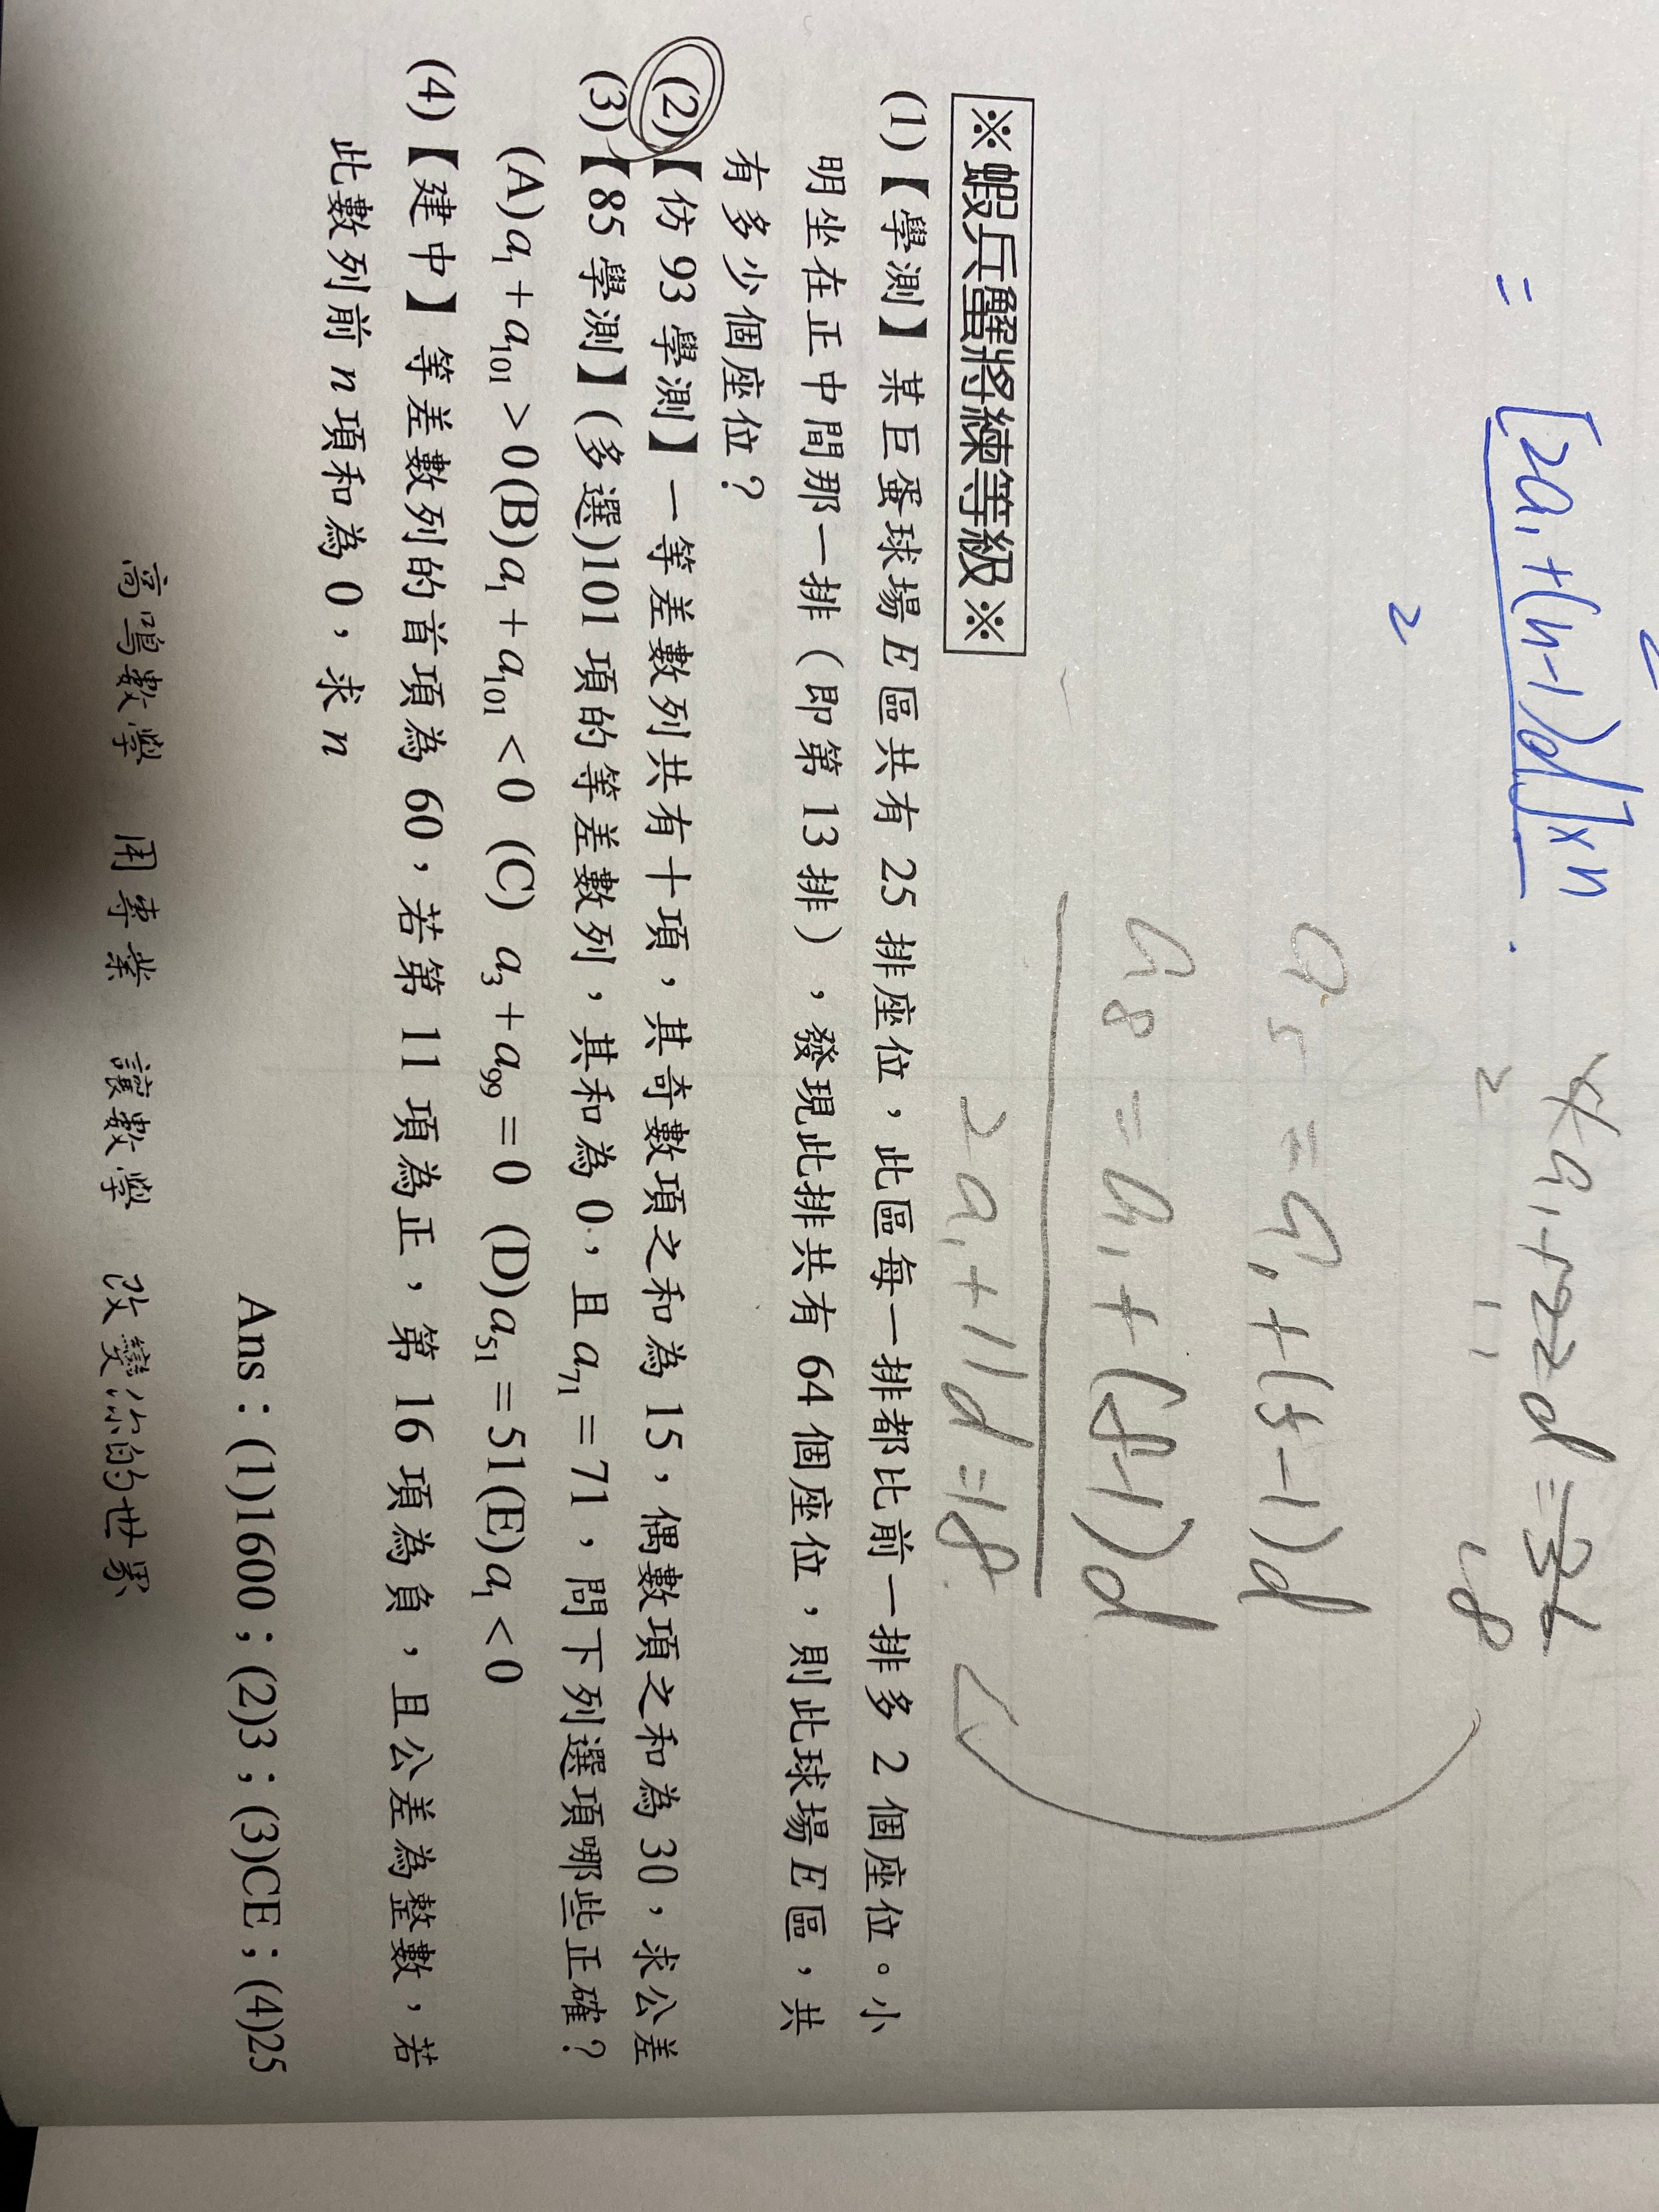 = [2a₁+(n-1)d]×n
2
a₁+22d=36
2 11 18
a₅=a₁+(5-1)d
a₈=a₁+(8-1)d
2a₁+11d=18
※蝦兵蟹將練等級※
(1)【學測】某巨蛋球場E區共有25排座位，此區每一排都比前一排多2個座位。小
明坐在正中間那一排（即第13排），發現此排共有64個座位，則此球場E區，共
有多少個座位？
(2)【仿93學測】一等差數列共有十項，其奇數項之和為15，偶數項之和為30，求公差
(3)【85學測】(多選)101項的等差數列，其和為0，且a₇₁=71，問下列選項哪些正確？
(A)a₁+a₁₀₁>0(B)a₁+a₁₀₁<0 (C) a₃+a₉₉=0 (D)a₅₁=51(E)a₁<0
(4)【建中】等差數列的首項為60，若第11項為正，第16項為負，且公差為整數，若
此數列前n項和為0，求n
Ans：(1)1600；(2)3；(3)CE；(4)25
高鳴數學 用專業 讓數學 改變你的世界